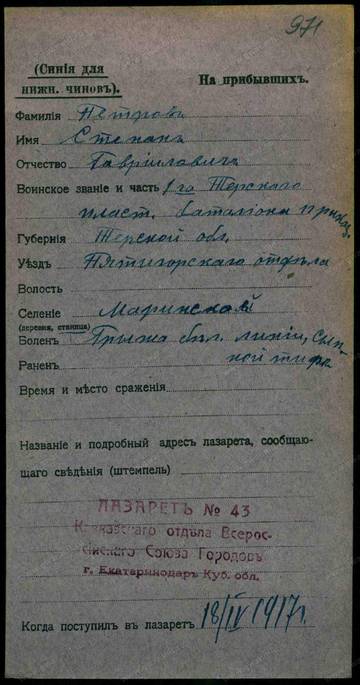 971
(Синія для
нижн. чиновъ).
На прибывшихъ.
Фамилія Петровъ
Имя Степанъ
Отчество Гавріиловичъ
Воинское званіе и часть 1го Терскаго
пласт. баталіона приказ.
Губернія Терской обл.
Уѣздъ Пятигорскаго отдѣла
Волость
Селеніе Маринской
(деревня, станица)
Боленъ Грыжа бѣл. линіи, Сып-
ной тифъ
Раненъ
Время и мѣсто сраженія
Названіе и подробный адресъ лазарета, сообщаю-
щаго свѣдѣнія (штемпель)
ЛАЗАРЕТЪ № 43
Кавказскаго отдѣла Всерос-
сійскаго Союза Городовъ
г. Екатеринодаръ Куб. обл.
Когда поступилъ въ лазаретъ 18/IV 1917 г.